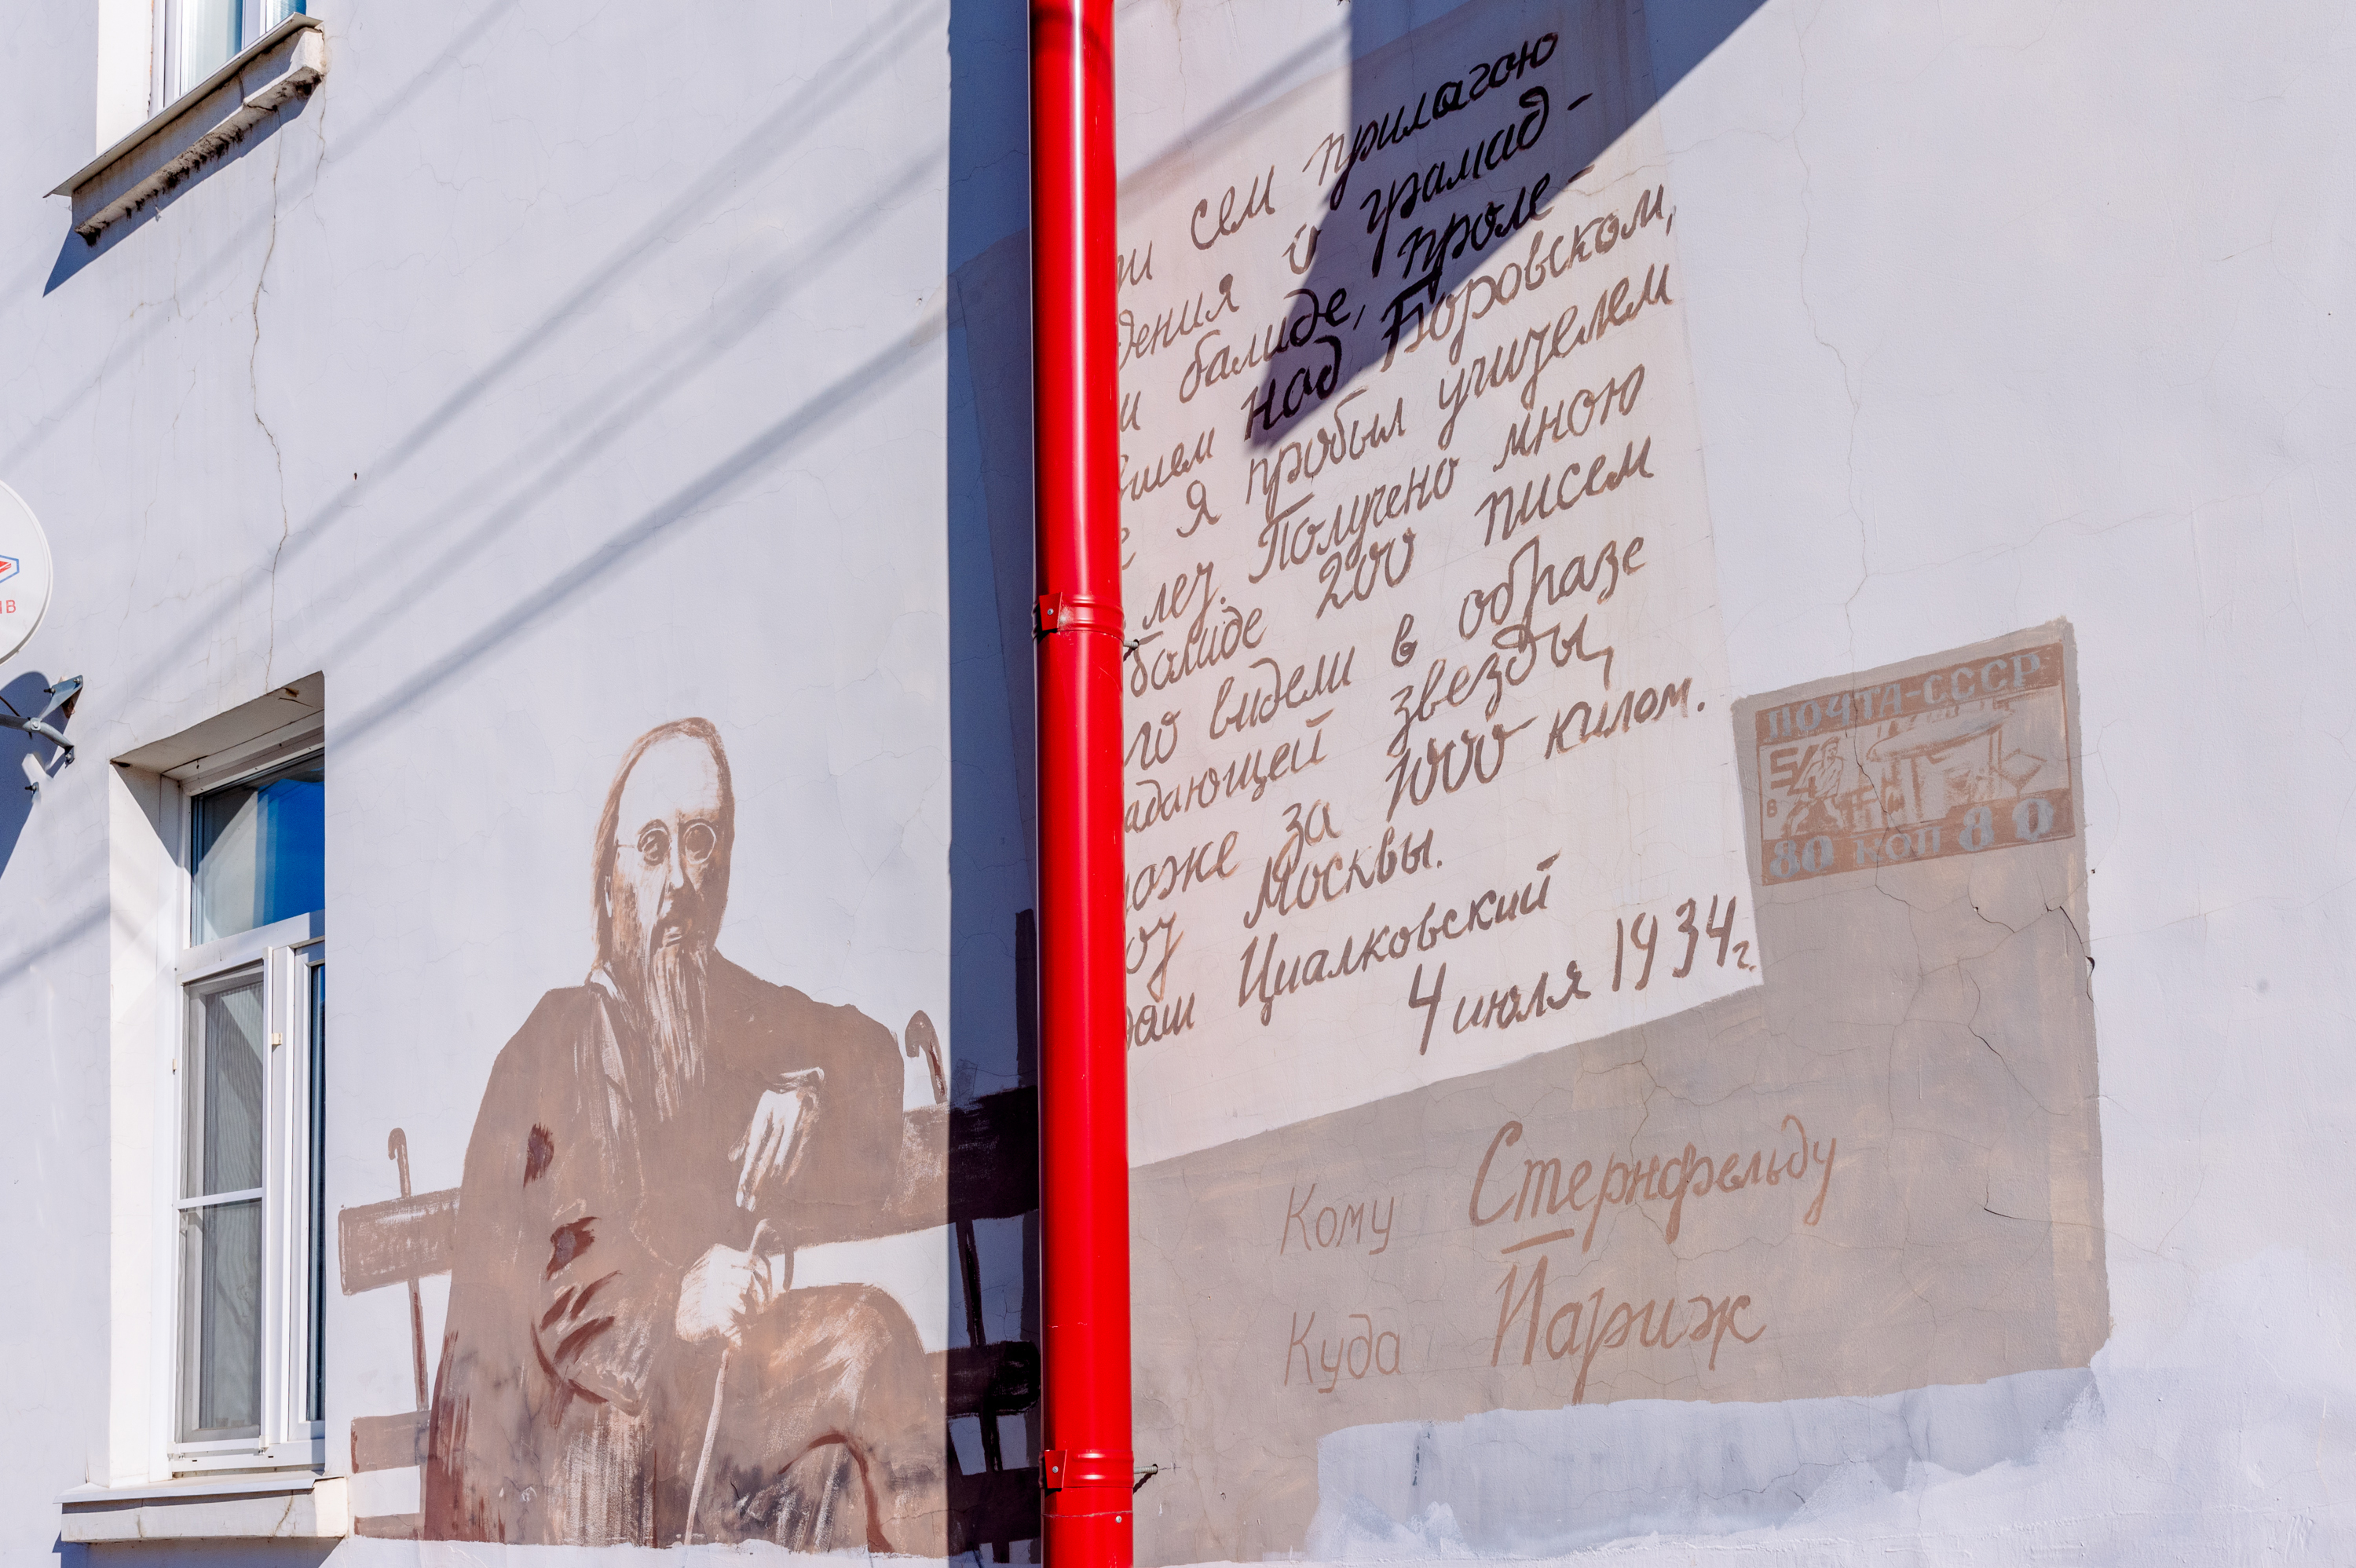 сем прилагою
дения о грамад-
балиде, проле-
вшем над Боровском,
я пробыл учителем
лет. Получено мною
балиде 200 писем
видели в образе
адающей звезды,
за 1000 килом.
Москвы.
Ваш Циалковский
4 июля 1934г.
ПОЧТА-СССР
80 КОП 80
Кому Стернфельду
Куда Париж